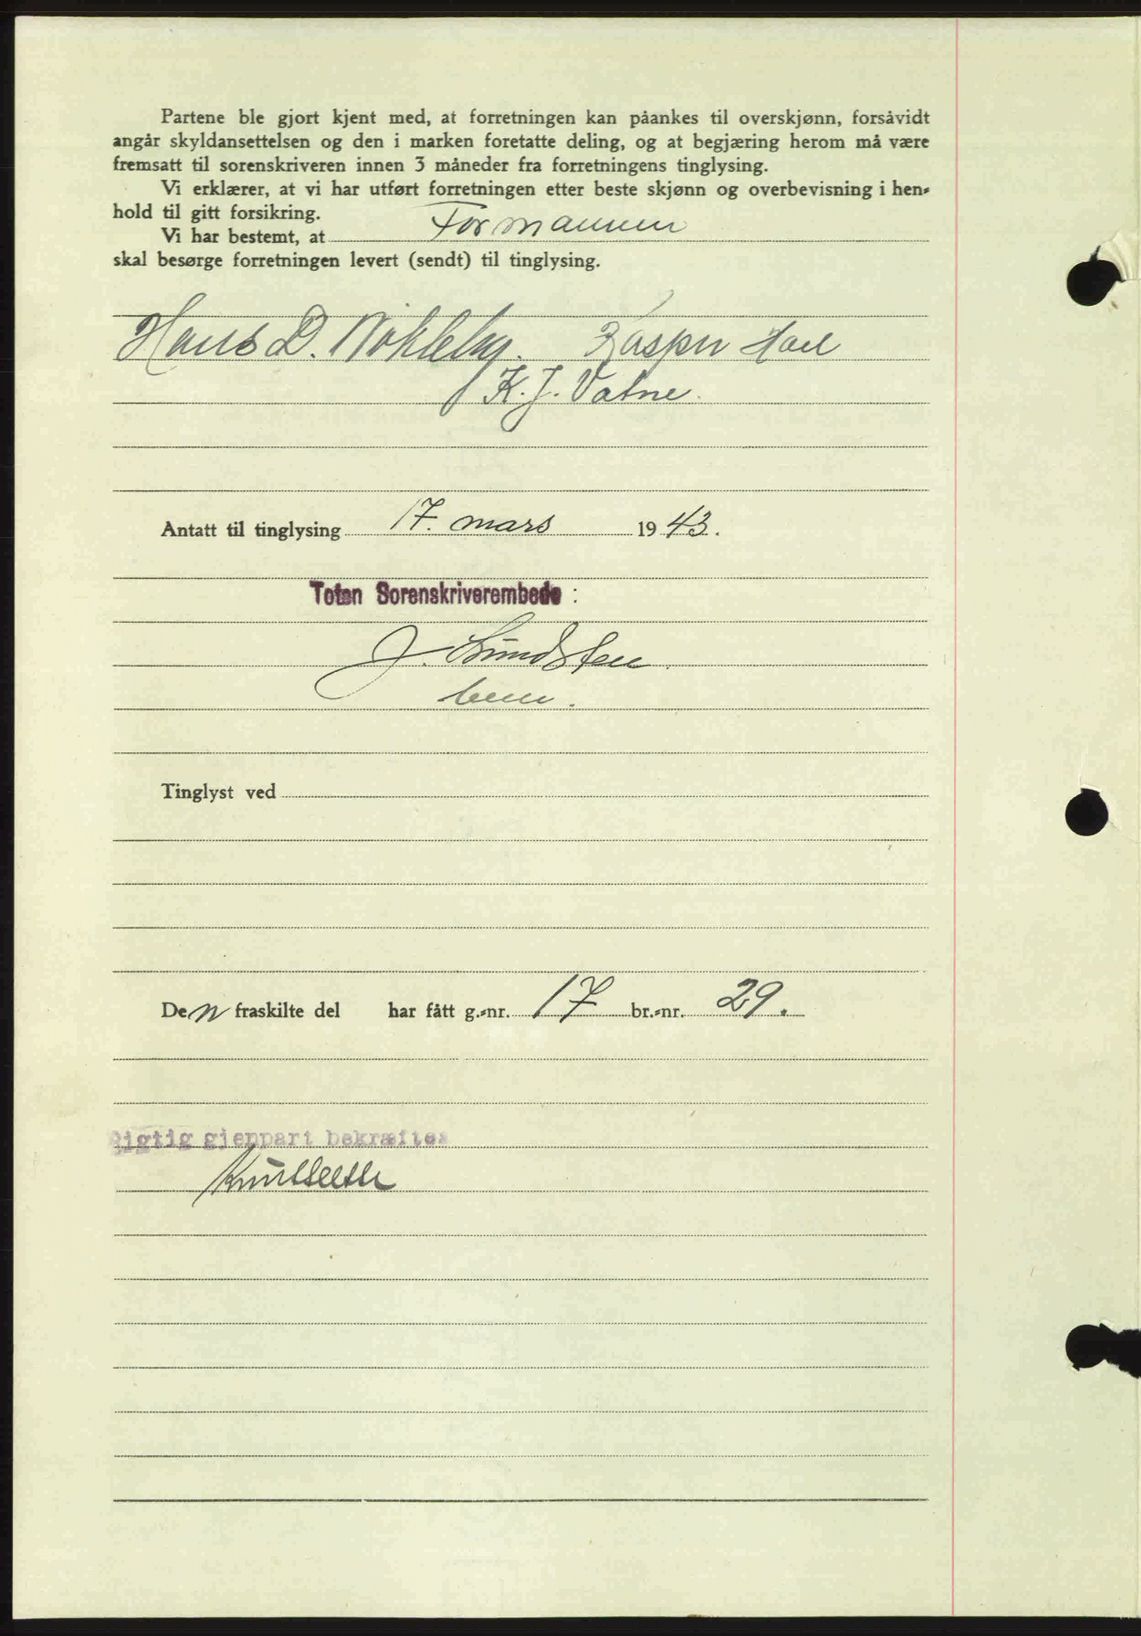 Partene ble gjort kjent med, at forretningen kan påankes til overskjønn, forsåvidt
angår skyldansettelsen og den i marken foretatte deling, og at begjæring herom må være
fremsatt til sorenskriveren innen 3 måneder fra forretningens tinglysing.
Vi erklærer, at vi har utført forretningen etter beste skjønn og overbevisning i hen-
hold til gitt forsikring.
Vi har bestemt, at Formannen
skal besørge forretningen levert (sendt) til tinglysing.
Hans D. Nökleby. Kasper Hoel
K. J. Vatne.
Antatt til tinglysing 17. mars 1943.
Toten Sorenskriverembede :
J. Sundsten
Tinglyst ved
Den fraskilte del har fått g.-nr. 17 br.-nr. 29.
Rigtig gjenpart bekræftes